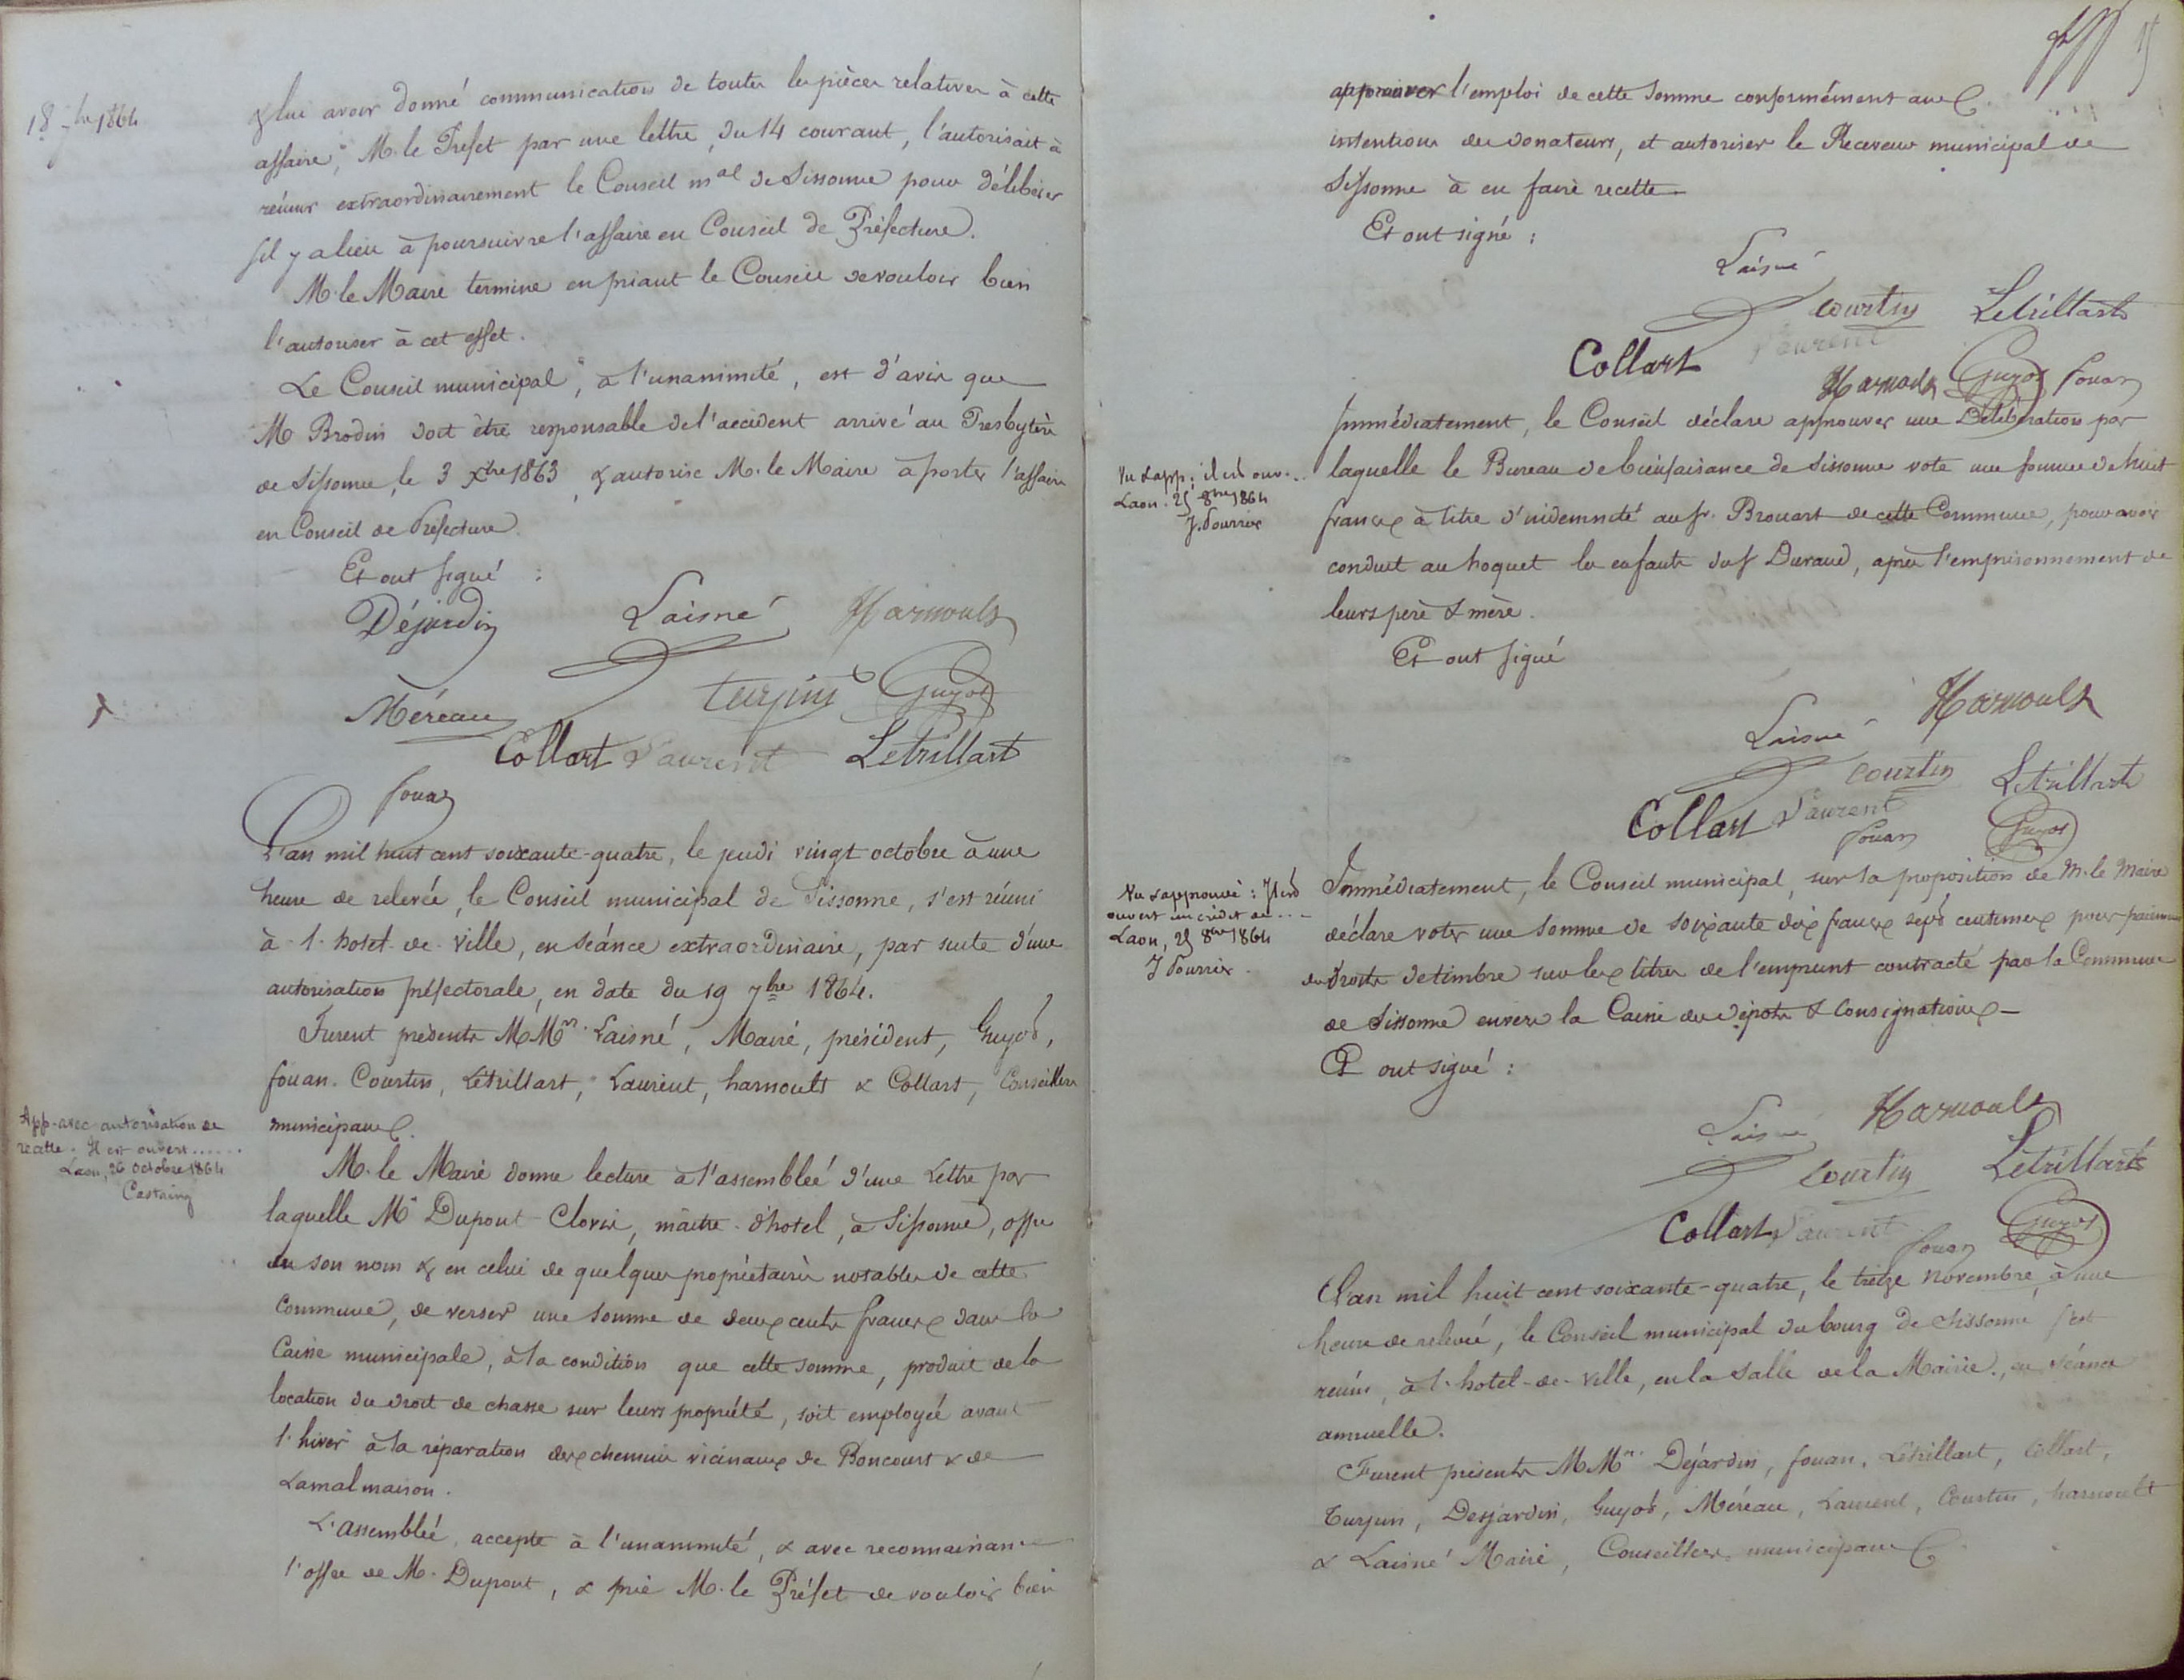 18 7bre 1864
& lui avoir donné communication de toutes les pièces relatives à cette
affaire, M. le Préfet par une lettre, du 14 courant, l'autorisait à
réunir extraordinairement le Conseil mal de Sissonne pour délibérer
s'il y a lieu à poursuivre l'affaire en Conseil de Préfecture.
M. le Maire termine en priant le Conseil de vouloir bien
l'autoriser à cet effet.
Le Conseil municipal, à l'unanimité, est d'avis que
M. Brodin doit être responsable de l'accident arrivé au Presbytère
de Sissonne, le 3 Xbre 1863, & autorise M. le Maire à porter l'affaire
en Conseil de Préfecture.
Et ont signé :
Déjardin Laisné Harnoult
Méreau Turpin Guyot
Collart Laurent Letrillart
fouan
L'an mil huit cent soixante-quatre, le jeudi vingt octobre à une
heure de relevée, le Conseil municipal de Sissonne, s'est réuni
à l'hotel-de-ville, en séance extraordinaire, par suite d'une
autorisation préfectorale, en date du 19 7bre 1864.
Furent présents MMrs. Laisné, Maire, président, Guyot,
fouan. Courtin, Létrillart, Laurent, harnoult & Collart, Conseillers
municipaux.
App. avec autorisation de
recette. Il est ouvert......
Laon, 26 Octobre 1864
Castaing
M. le Maire donne lecture à l'assemblée d'une Lettre par
laquelle Mr Dupont Clovis, maitre-d'hotel, à Sissonne, offre
en son nom & en celui de quelques propriétaires notables de cette
commune, de verser une somme de deux cents francs dans la
Caisse municipale, à la condition que cette somme, produit de la
location du droit de chasse sur leurs propriété, soit employée avant
l'hiver à la réparation des chemins vicinaux de Boncourt & de
Lamalmaison.
L'assemblée, accepte à l'unanimité, & avec reconnaissance
l'offre de M. Dupont, & prie M. le Préfet de vouloir bien
approuver l'emploi de cette somme conformément aux
intentions des donateurs, et autoriser le Receveur municipal de
Sissonne à en faire recette.
Et ont signé :
Laisné
Courtin Letrillart
Collart Laurent
Harnoult Guyot fouan
Immédiatement, le Conseil déclare approuver une Délibération par
laquelle le Bureau de bienfaisance de Sissonne vote une somme de huit
francs à titre d'indemnité au sr. Brouart de cette Commune, pour avoir
conduit au hoquet les enfants du sr Durand, après l'emprisonnement de
leurs père & mère.
Vu & app : il est ouv...
Laon. 25 8bre 1864
J. Pourrier
Et ont signé
Harnoult
Laisné
Courtin Letrillart
Collart Laurent
fouan Guyot
Immédiatement, le Conseil municipal, sur la proposition de M. le Maire
déclare voter une somme de soixante dix francs sept centimes pour paiement
des droits de timbre sur les titres de l'emprunt contracté par la Commune
de Sissonne envers la Caisse des dépôts & consignations.
Vu & approuvé : Il est
ouvert un crédit de...
Laon, 25 8bre 1864
J Pourrier
Et ont signé :
Laisné Harnoult
Courtin Letrillart
Collart Laurent
fouan Guyot
L'an mil huit cent soixante-quatre, le treize novembre, à une
heure de relevée, le Conseil municipal du bourg de Sissonne s'est
réuni, à l'hotel-de-ville, en la salle de la Mairie, en séance
annuelle.
Furent présents MMrs. Déjardin, fouan, Létrillart, Collart,
Turpin, Desjardin, Guyot, Méreau, Laurent, Courtin, harnoult
& Laisné Maire, Conseillers municipaux.